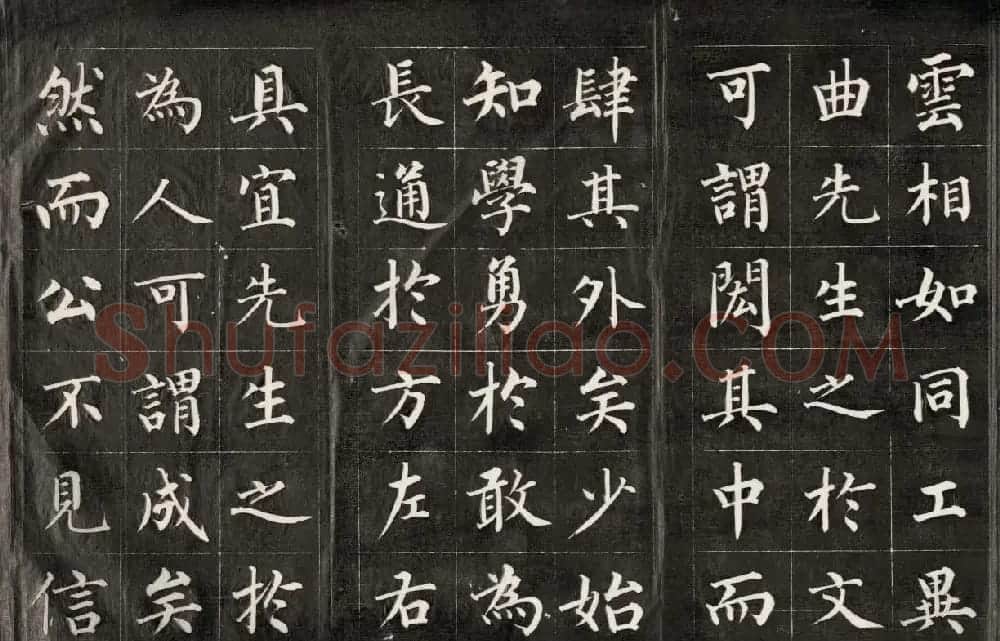 雲相如同工異
曲先生之於文
可謂閎其中而
肆其外矣少始
知學勇於敢為
長通於方左右
具宜先生之於
為人可謂成矣
然而公不見信
Shufaziliao.COM